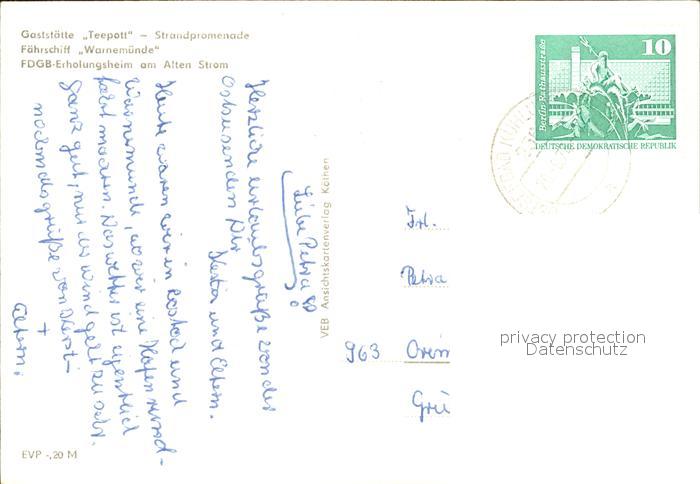 Gaststätte „Teepott" – Strandpromenade
Fährschiff „Warnemünde"
FDGB-Erholungsheim am Alten Strom
Liebe Petra!
Herzliche Urlaubsgrüße von der
Ostsee senden Dir
Kerstin und Eltern.
Heute waren wir in Rostock und
Warnemünde, wo wir eine Hafenrund-
fahrt machten. Das Wetter ist eigentlich
ganz gut, nur der Wind geht zu sehr.
nochmals Grüße von Kersti
+
Eltern.
EVP -,20 M
VEB Ansichtskartenverlag Köthen
10
Berlin, Rathausstraße
DEUTSCHE DEMOKRATISCHE REPUBLIK
Frl.
Petra
privacy protection
Datenschutz
963